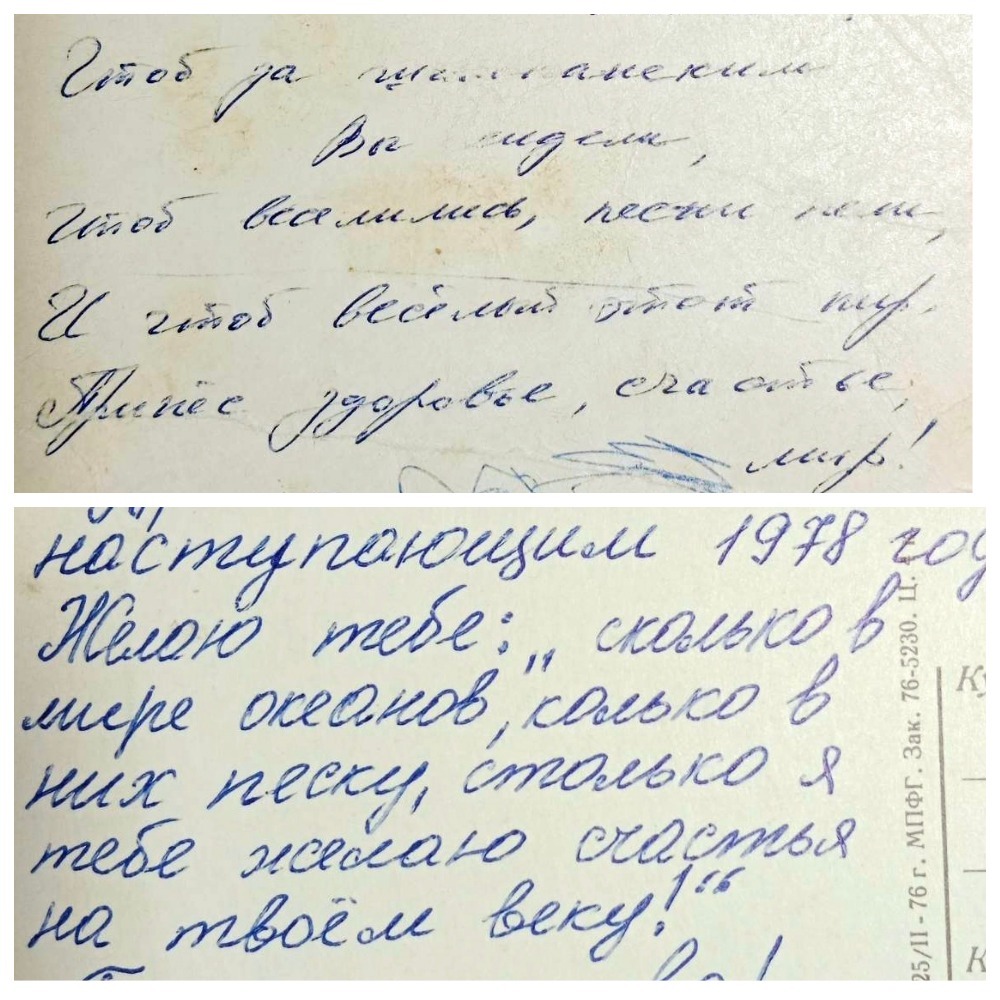 Чтоб за шампанским
Вы сидели,
Чтоб веселились, песни пели,
И чтоб весёлый этот пир.
Принёс здоровье, счастье,
мир!
наступающим 1978 год
Желаю тебе: „сколько в
мире океанов, колько в
них песку, столько я
тебе желаю счастья
на твоём веку!“
25/II - 76 г. МПФГ. Зак. 76-5230. Ц.
Ку
К